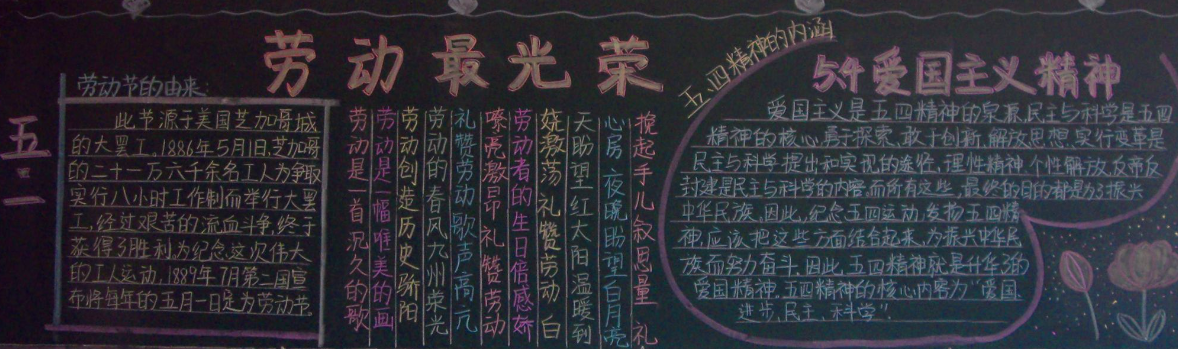 劳动最光荣
五一
劳动节的由来:
此节源于美国芝加哥城
的大罢工,1886年5月1日,芝加哥
的二十一万六千余名工人为争取
实行八小时工作制而举行大罢
工,经过艰苦的流血斗争,终于
获得了胜利,为纪念这次伟大
的工人运动,1889年7月第二国宣
布将每年的五月一日定为劳动节
劳动是一首沉久的歌
劳动是一幅唯美的画
劳动创造历史骄阳
劳动的春风九州荣光
礼赞劳动歌声高亢
嘹亮激昂礼赞劳动
劳动者的生日倍感娇
娆激荡礼赞劳动 白
天盼望红太阳温暖到
心房 夜晚盼望白月亮
挽起手儿叙思量 礼
五.四精神的内涵
54爱国主义精神
爱国主义是五四精神的泉源,民主与科学是五四
精神的核心,勇于探索、敢于创新、解放思想、实行变革是
民主与科学提出和实现的途径,理性精神、个性解放、反帝反
封建是民主与科学的内容,而所有这些,最终的目的都是为了振兴
中华民族,因此,纪念五四运动,发扬五四精
神,应该把这些方面结合起来,为振兴中华民
族而努力奋斗,因此,五四精神就是
爱国精神,五四精神的核心内容为“爱国、
进步、民主、科学”